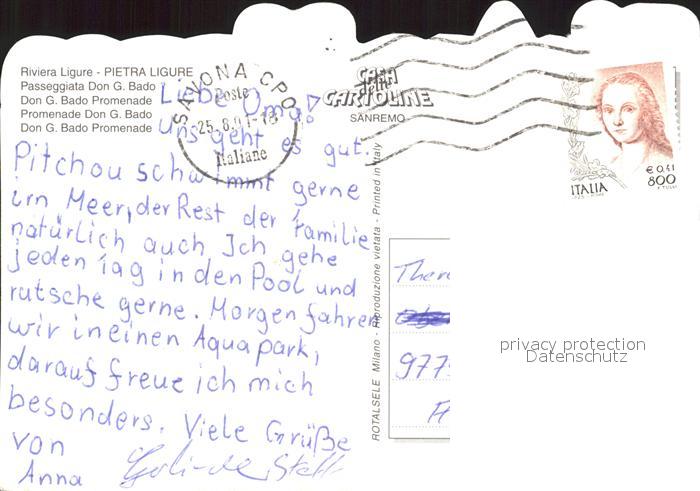 Riviera Ligure - PIETRA LIGURE
Passeggiata Don G. Bado
Don G. Bado Promenade
Promenade Don G. Bado
Don G. Bado Promenade
SAVONA CPO
Poste
25.8.01-18
Italiane
CASA
delle
CARTOLINE
SANREMO
ITALIA
€ 0,41
800
Liebe Oma!
Uns geht es gut.
Pitchou schwimmt gerne
im Meer, der Rest der Familie
natürlich auch. Ich gehe
jeden Tag in den Pool und
rutsche gerne. Morgen fahren
wir in einen Aquapark,
darauf freue ich mich
besonders. Viele Grüße
von
Anna
ROTALSELE Milano - Riproduzione vietata - Printed in Italy
977
privacy protection
Datenschutz